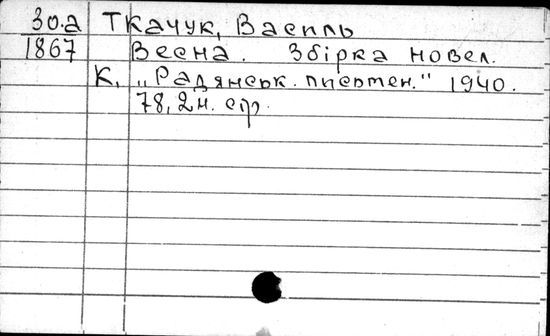 30.а Ткачук, Василь
1867 Весна. Збірка новел.
К. „Радянськ. письмен." 1940.
78, 2 н. стр.